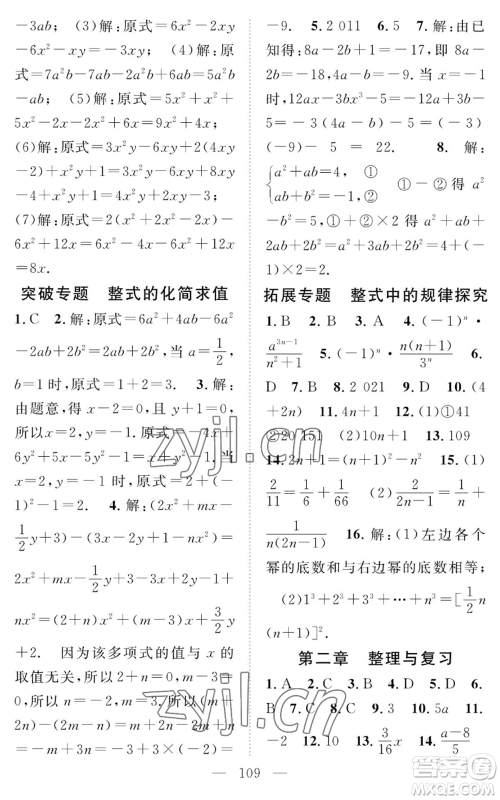 -3ab；(3)解：原式=6x²-4xy
-6x²-xy=-3xy；(4)解：原式
=7a²b-7ab-2a²b+6ab=5a²b
-ab；(5)解：原式=5x²+x²+
5x²+4x-2x²-8x=9x²-4x；
(6)解：原式=-3x²-6xy+2(4xy
-2)+1=-3x²-6xy+8xy
-4+1=-3x²+2xy-3；
(7)解：原式=2(x²+2x²+4x-
3x²-6)+12=8x-12+12
=8x.
突破专题 整式的化简求值
1.C 2.解：原式=6a²+4ab-6a²
-2ab+2b²=2ab+2b²，当a=1/2，
b=1时，原式=1+2=3. 3.解：
由题意，得x-2=0，y+1=0，
所以x=2，y=-1. 原式=4x+
6y²+5x-5y²-1=9x+y²
-1，所以原式=9×2+
(-1)²-1=18. 4.解：(2x²+mx-
1/2y+3)-(3x-2y+1-nx²)=
2x²+mx-1/2y+3-3x+2y-1+
nx²=(2+n)x²+(m-3)x+3/2y
+2. 因为该多项式的值与x的
取值无关，所以2+n=0，m-3
=0，所以n=-2，m=3. (m+
2n)-(2m-n)=m+2n-2m+n
=-m+3n=-3+3×(-2)=
-9. 5.2 011 6.C 7.解：由已
知得：8a-2b=-18，即8a-
2b=-18，4a-b=-9. 当x=-1
时，12ax-3bx³-5=-12a+3b
-5=-3(4a-b)-5=-3×
(-9)-5=22. 8.解：
{a²+ab=4，① ab+b²=-2，② ①-②得a²
-b²=5. ①+②×2得a²+ab+
2ab+2b²=a²+3ab+2b²=4+
(-1)×2=2.
拓展专题 整式中的规律探究
1.B 2.B 3.A 4.(-1)ⁿ·
a³ⁿ⁻¹/(n²+1) 5.(-1)ⁿ·n(n+1)/3ⁿ 6.
D 7.B 8.2 021 9.D 10.(4
+2n) 11.4n+1 12.(1)①41
②20 151 (2)100 13.109
14.2n+1=(n+1)²-n² 15.(1)
2/11=1/6+1/66 (2)2/(2n-1)=1/n+
1/(n(2n-1)) 16.解：(1)左边各个
幂的底数和与右边幂的底数相等；
(2)1³+2³+3³+…+n³=[1/2n
(n+1)]².
第二章 整理与复习
1.A 2.C 3.D 4.D 5.D 6.
B 7.C 8.B 9.A 10.A 11.
-2 12.10 13.3/16x 14.(a-8)/5
109
zyjl.cn